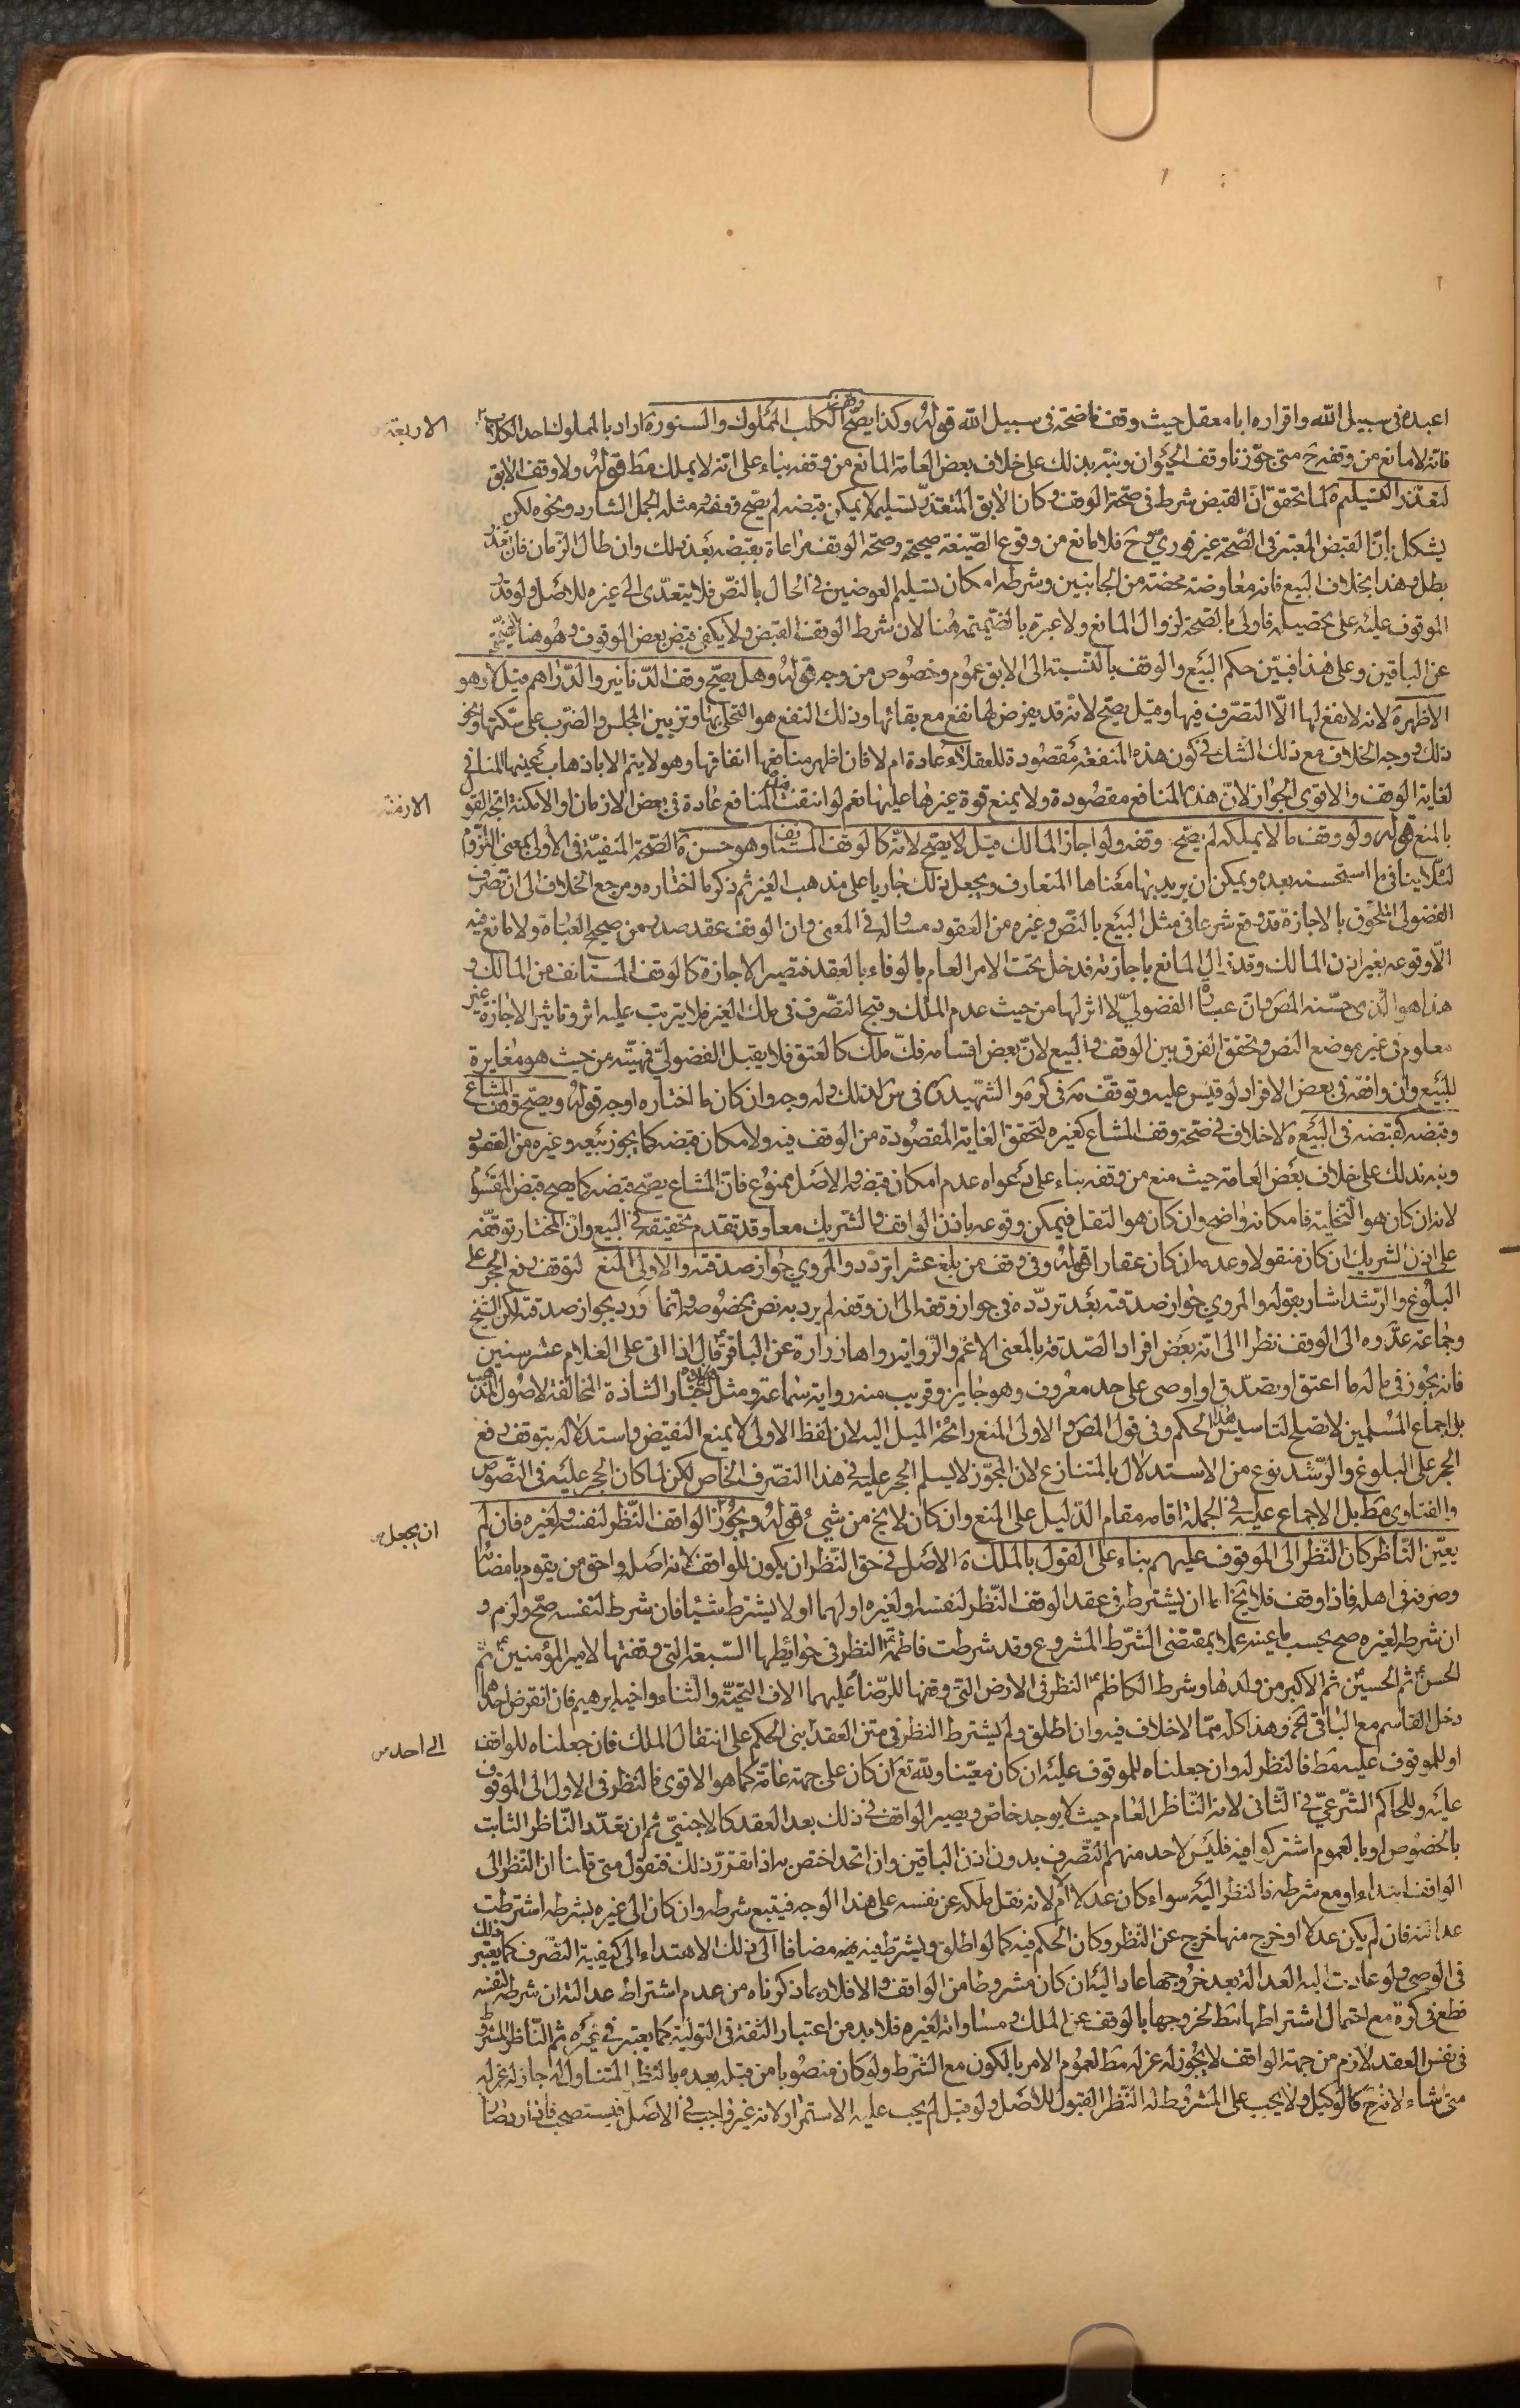 اعبده فى سبيل الله واقراره ابا معقل حيث وقف ناضحة فى سبيل الله قوله وكذا يصح وقف الكلب المملوك والسنورة اراد بالمملوك احد الكلاب الاربعة
فانه لا مانع من وقفه ح متى جوزنا وقف الحيوان ونبه بذلك على خلاف بعض العامة المانع من وقفه بناء على انه لا يملك مط قوله ولا وقف الابق
لتعذر التسليم ة لما تحقق ان القبض شرط فى صحة الوقف وكان الابق المتعذر تسليمه لا يمكن قبضه لم يصح وقفه ومثله الجمل الشارد ونحوه لكن
يشكل بان القبض المعتبر فى الصحة غير فورى وح فلا مانع من وقوع الصيغة صحيحة وصحة الوقف مراعاة بقبضه بعد ذلك وان طال الزمان فان تعذر
بطل وهذا بخلاف البيع فانه معاوضة محضة من الجانبين وشرطه امكان تسليم العوضين فى الحال بالنص فلا يتعدى الى غيره للاصل ولو قدر
الموقوف عليه على تحصيله فاولى بالصحة لزوال المانع ولا عبرة بالضميمة هنا لان شرط الوقف القبض ولا يكفى قبض بعض الموقوف وهو هنا الضميمة
عن الباقين وعلى هذا فبين حكم البيع والوقف بالنسبة الى الابق عموم وخصوص من وجه قوله وهل يصح وقف الدنانير والدراهم قيل لا وهو
الاظهر ة لانه لا نفع لها الا التصرف فيها وقيل يصح لانه قد يفرض لها نفع مع بقائها وذلك النفع هو التحلى بها وتزيين المجلس والضرب على سكتها ونحو
ذلك ووجه الخلاف مع ذلك الشك فى كون هذه المنفعة مقصودة للعقلاء عادة ام لا فان اظهر منافعها انفاقها وهو لا يتم الا باذهاب عينها المنافى
لغاية الوقف والاقوى الجواز لان هذه المنافع مقصودة ولا يمنع قوة غيرها عليها نعم لو انتفت هذه المنافع عادة فى بعض الازمان او الامكنة اتجه القول
الازمنة
بالمنع قوله ولو وقف ما لا يملكه لم يصح وقفه ولو اجاز المالك قيل لا يصح لانه كالوقف المستانف وهو حسن ة الصحة المنفية فى الاولى بمعنى اللزوم
لئلا ينافى ما استحسنه بعده ويمكن ان يريد بها معناها المتعارف ويجعل ذلك جاريا على مذهب الغير ثم ذكر ما اختاره ومرجع الخلاف الى ان تصرف
الفضولى الملحوق بالاجازة قد وقع شرعا فى مثل البيع بالنص وغيره من العقود مساو له فى المعنى وان الوقف عقد صدر من صحيح العبارة ولا مانع منه
الا وقوعه بغير اذن المالك وقد زال المانع باجازته فدخل تحت الامر العام بالوفاء بالعقد فتصير الاجازة كالوقف المستانف من المالك و
هذا هو الذى حسنه المص وان عبارة الفضولى لا اثر لها من حيث عدم الملك وقبح التصرف فى ملك الغير فلا يترتب عليه اثر وتاثير الاجازة غير
معلوم فى غير موضع النص وتحقق الفرق بين الوقف والبيع لان بعض اقسامه فك ملك كالعتق فلا يقبل الفضولى فهيئته من حيث هو مغايرة
للبيع وان وافقه فى بعض الافراد لو قيس عليه وتوقف مه فى كره والشهيد ره فى س لذلك وله وجه وان كان ما اختاره اوجه قوله ويصح وقف المشاع
وقبضه كقبضه فى البيع ة لا خلاف فى صحة وقف المشاع كغيره لتحقق الغاية المقصودة من الوقف فيه ولامكان قبضه كما يجوز بيعه وغيره من العقود
ونبه بذلك على خلاف بعض العامة حيث منع من وقفه بناء على دعواه عدم امكان قبضه والاصل ممنوع فان المشاع يصح قبضه كما يصح قبض المقسوم
لانه ان كان هو التخلية فامكانه واضح وان كان هو النقل فيمكن وقوعه باذن الواقف والشريك معا وقد تقدم تحقيقه فى البيع وان المختار توقفه
على اذن الشريك ان كان منقولا وعدمه ان كان عقارا قوله وفى وقف من بلغ عشرا تردد والمروى جواز صدقته والاولى المنع لتوقف رفع الحجر على
البلوغ والرشد اشار بقوله والمروى جواز صدقته بعد تردده فى جواز وقفه الى ان وقفه لم يرد به نص بخصوصه وانما ورد بجواز صدقته لكن الشيخ
وجماعة عدوه الى الوقف نظرا الى انه بعض افراد الصدقة بالمعنى الاعم والرواية رواها زرارة عن الباقر ع قال اذا اتى على الغلام عشر سنين
فانه يجوز فى ماله ما اعتق او تصدق او اوصى على حد معروف وهو جايز وقريب منه رواية سماعة ومثل هذه الاخبار الشاذة المخالفة لاصول المذهب
بل اجماع المسلمين لا تصلح لتاسيس هذا الحكم وفى قول المص والاولى المنع رائحة الميل اليه لان لفظ الاولى لا يمنع النقيض واستدلاله بتوقف رفع
الحجر على البلوغ والرشد نوع من الاستدلال بالمتنازع لان المجوز لا يسلم الحجر عليه فى هذا التصرف الخاص لكن لما كان الحجر عليه فى النصوص
والفتاوى مط بل الاجماع عليه فى الجملة اقامه مقام الدليل على المنع وان كان لا يخ من شىء قوله ويجوز ان يجعل الواقف النظر لنفسه ولغيره فان لم
يعين الناظر كان النظر الى الموقوف عليهم بناء على القول بالملك ة الاصل فى حق النظر ان يكون للواقف لانه اصله واحق من يقوم بامضائه
وصرفه فى اهله فاذا وقف فلا يخ اما ان يشترط فى عقد الوقف النظر لنفسه او لغيره او لهما او لا يشترط شيئا فان شرط لنفسه صح ولزم و
ان شرطه لغيره صح بحسب ما عينه عملا بمقتضى الشرط المشروع وقد شرطت فاطمة ع النظر فى حوائطها السبعة التى وقفتها لامير المؤمنين ع ثم
الحسن ع ثم الحسين ع ثم الاكبر من ولدها وشرط الكاظم ع النظر فى الارض التى وقفها للرضا عليهما الاف التحية والثناء واخيه ابرهيم فان انقرض احدهما
دخل القاسم مع الباقى الخ وهذا كله مما لا خلاف فيه وان اطلق ولم يشترط النظر فى متن العقد لاحد بنى الحكم على انتقال الملك فان جعلناه للواقف
الى احد
او للموقوف عليه مط فالنظر له وان جعلناه للموقوف عليه ان كان معينا ولله تع ان كان على جهة عامة كما هو الاقوى فالنظر فى الاول الى الموقوف
عليه وللحاكم الشرعى فى الثانى لانه الناظر العام حيث لا يوجد خاص ويصير الواقف فى ذلك بعد العقد كالاجنبى ثم ان تعدد الناظر الثابت
بالخصوص او بالعموم اشتركوا فيه فليس لاحد منهم التصرف بدون اذن الباقين وان اتحد اختص به اذا تقرر ذلك فنقول متى قلنا ان النظر الى
الواقف ابتداء او مع شرطه فالنظر اليه سواء كان عدلا ام لا لانه نقل ملكه عن نفسه على هذا الوجه فيتبع شرطه وان كان الى غيره بشرطه اشترطت
عدالته فان لم يكن عدلا او خرج منها خرج عن النظر وكان الحكم فيه كما لو اطلق ويشترط فيه مضافا الى ذلك الاهتداء الى كيفية التصرف كما يعتبر ذلك
فى الوصى ولو عادت اليه العدالة بعد خروجها عاد اليه ان كان مشروطا من الواقف والا فلا وبما ذكرناه من عدم اشتراط عدالته ان شرطه لنفسه
قطع فى كرة مع احتمال اشتراطها مط لخروجها بالوقف عن الملك ومساواته لغيره فلا بد من اعتبار الثقة فى التولية كما يعتبر فى غيره ثم الناظر المشروط
فى نفس العقد لازم من جهة الواقف لا يجوز له عزله مط لعموم الامر بالكون مع الشرط ولو كان منصوبا من قبله بعده بالنظر المتناول له جاز له عزله
متى شاء لانه ح كالوكيل ولا يجب على المشروط له النظر القبول للاصل ولو قبل لم يجب عليه الاستمرار لانه غير واجب فى الاصل فيستصحب فاذا رد صار